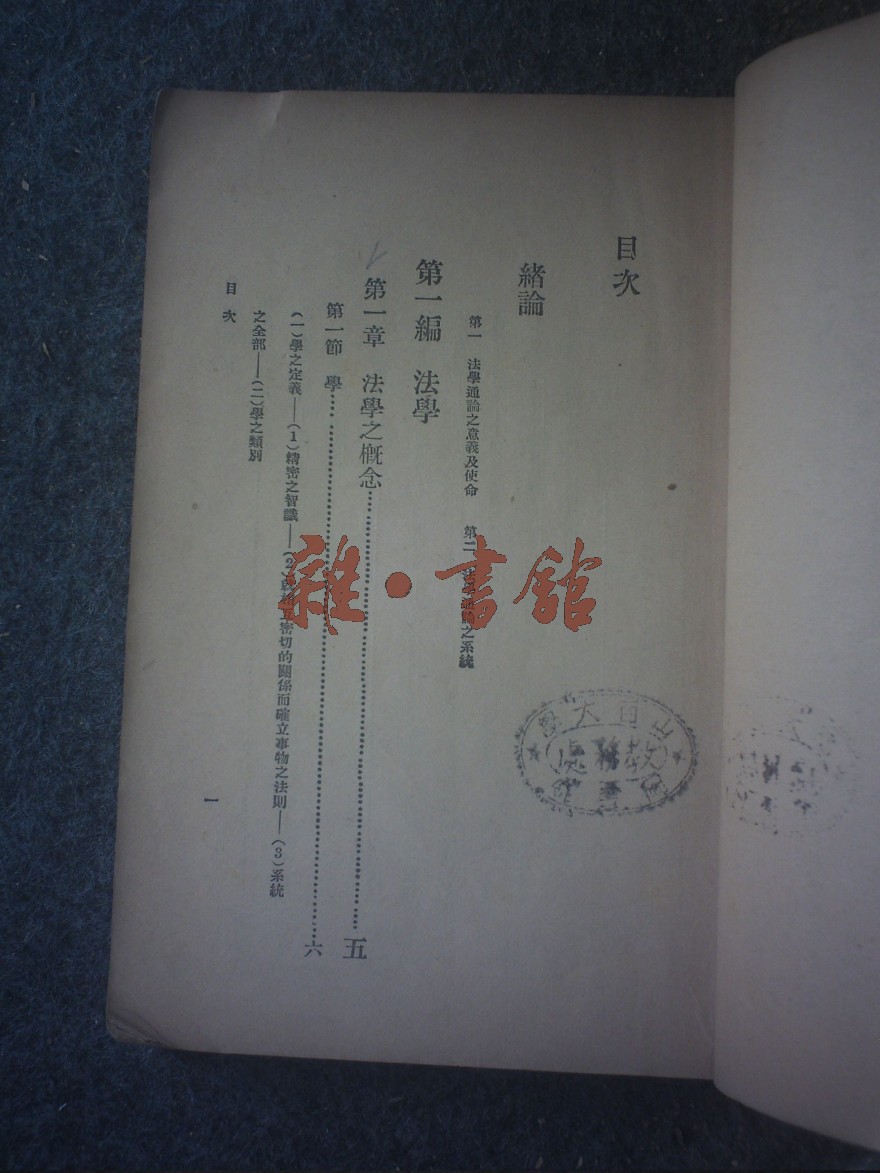 目次
緒論
第一 法學通論之意義及使命 第二 法學通論之系統
第一編 法學
第一章 法學之概念……五
第一節 學……六
(一)學之定義——(1)精密之智識——(2)密切的關係而確立事物之法則——(3)系統
之全部——(二)學之類別
目次
一
雜·書館
大
教務處